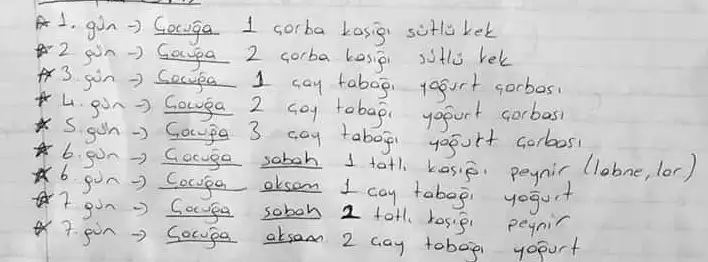 ☆ 1. gün → Çocuğa 1 çorba kaşığı sütlü kek
☆ 2 gün → Çocuğa 2 çorba kaşığı sütlü kek
☆ 3. gün → Çocuğa 1 çay tabağı yoğurt çorbası
☆ 4. gün → Çocuğa 2 çay tabağı yoğurt çorbası
☆ 5. gün → Çocuğa 3 çay tabağı yoğurt çorbası
☆ 6. gün → Çocuğa sabah 1 tatlı kaşığı peynir (labne, lor)
☆ 6. gün → Çocuğa akşam 1 çay tabağı yoğurt
☆ 7. gün → Çocuğa sabah 2 tatlı kaşığı peynir
☆ 7. gün → Çocuğa akşam 2 çay tabağı yoğurt